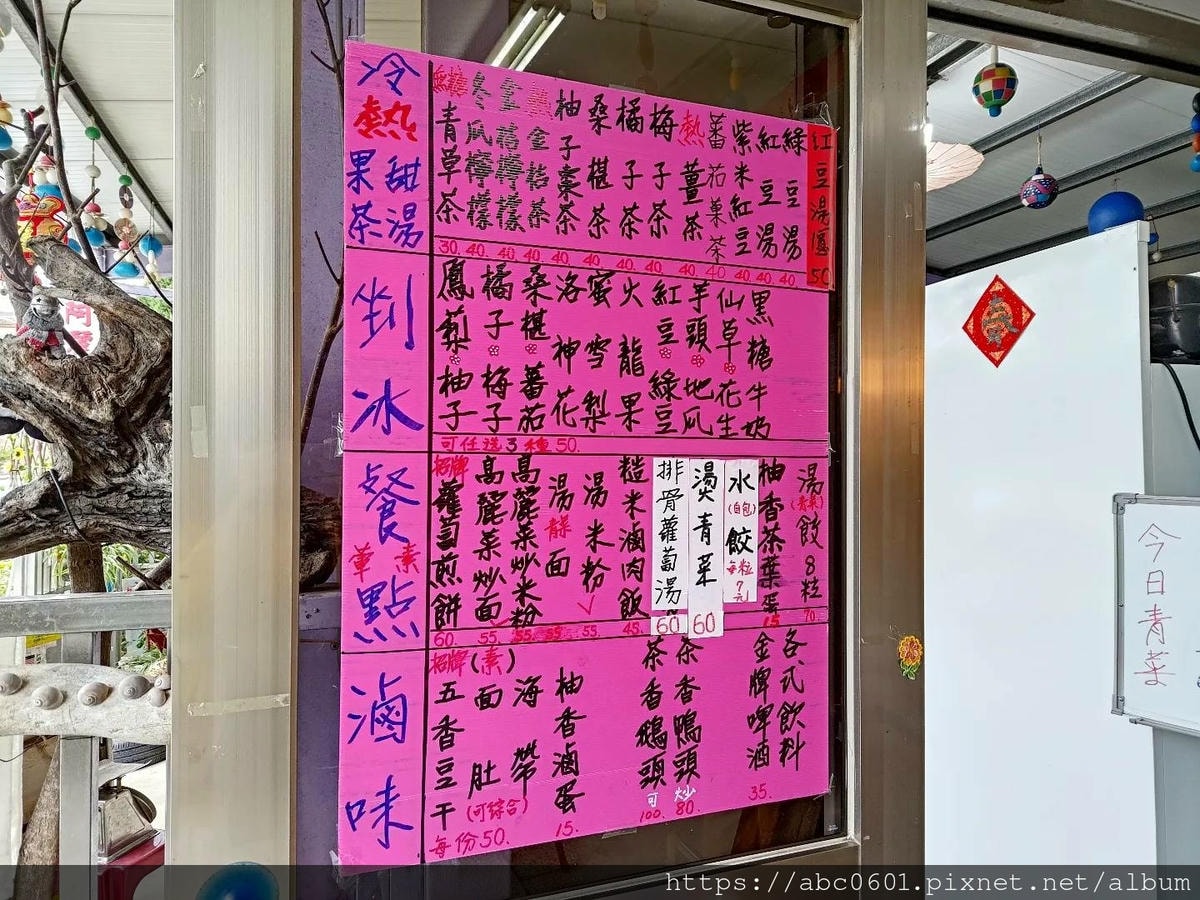 冷熱果茶甜湯
無糖青草茶 30.
冬瓜檸檬 40.
金桔檸檬 40.
熱金桔茶 40.
柚子棗茶 40.
桑椹茶 40.
橘子茶 40.
梅子茶 40.
熱薑茶 40.
蕃茄菓茶 40
紫米紅豆 40.
紅豆湯 40.
綠豆湯 40
紅豆湯圓 50
剉冰
鳳梨 橘子 桑椹 洛神花 蜜雪梨 火龍果 紅豆 芋頭 仙草 黑糖牛奶
柚子 梅子 蕃茄 綠豆 地瓜 花生
可任選3種50.
餐點
葷 素
招牌蘿蔔煎餅 60.
高麗菜炒面 55.
高麗菜炒米粉 55.
湯面 55.
湯米粉 55.
糙米滷肉飯 45.
排骨蘿蔔湯 60
燙青菜 60
水(自包)餃 每粒7元
柚香茶葉蛋 15
湯(青菜)餃8粒 70.
滷味
招牌(素)
五香豆干
面肚
海帶
(可綜合)
每份50.
柚香滷蛋 15.
茶香鵝頭 100.
茶香鴨頭 80.
可炒
金牌啤酒 35.
各式飲料
今日青菜
https://abc0601.pixnet.net/album